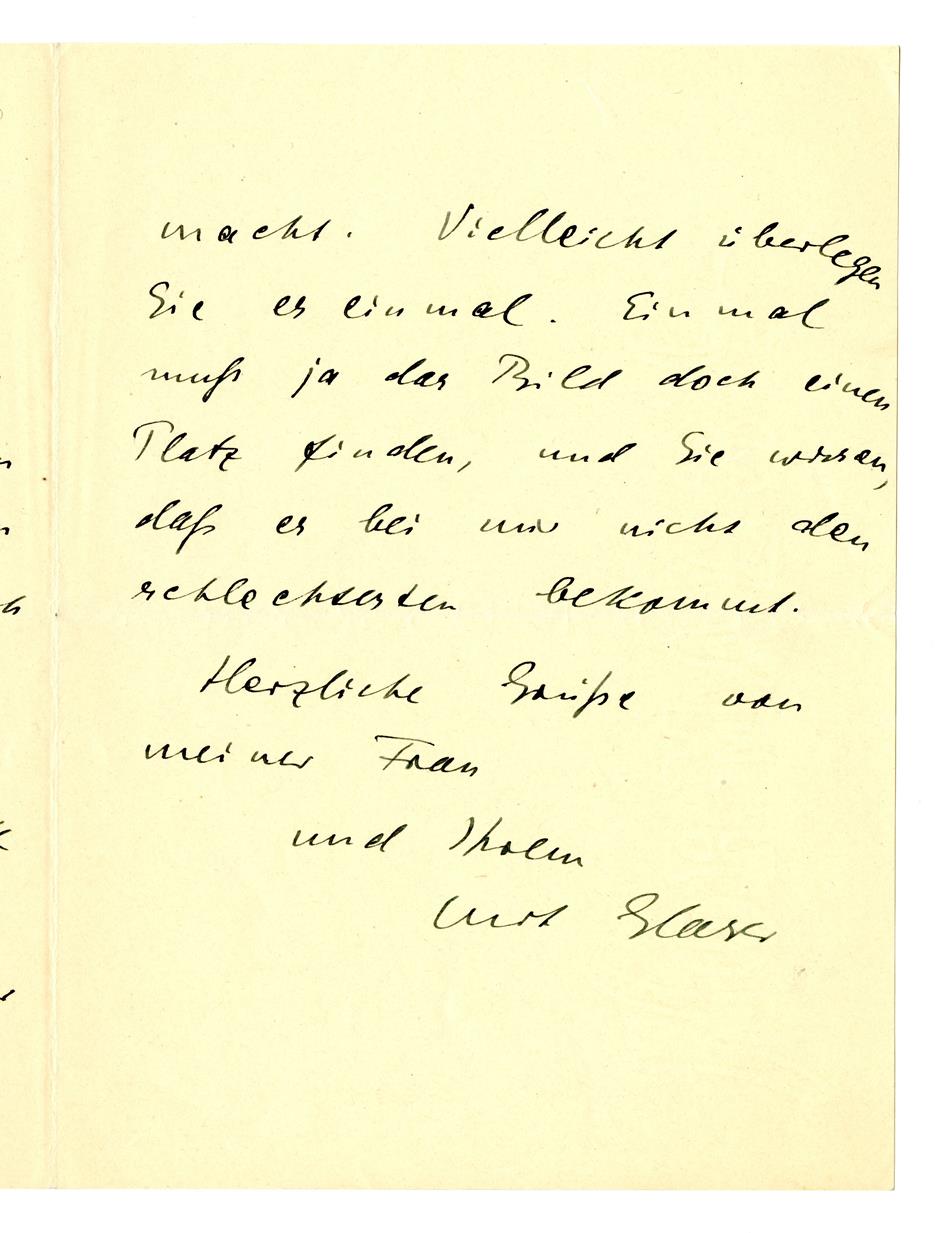 macht. Vielleicht überlegen
Sie es einmal. Einmal
muß ja das Bild doch einen
Platz finden, und Sie wissen,
daß es bei mir nicht den
schlechtesten bekommt.
Herzliche Grüße von
meiner Frau
und Ihrem
Curt Glaser